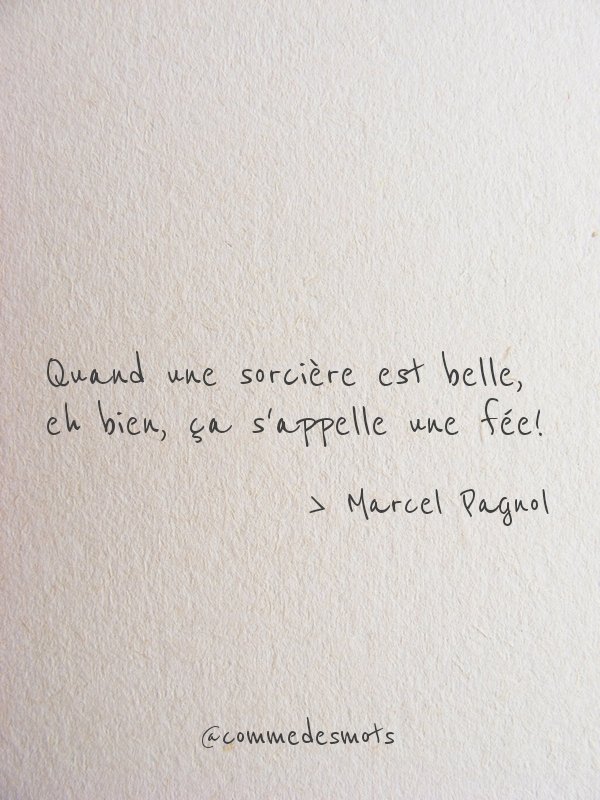 Quand une sorcière est belle,
eh bien, ça s'appelle une fée!
> Marcel Pagnol
@commedesmots